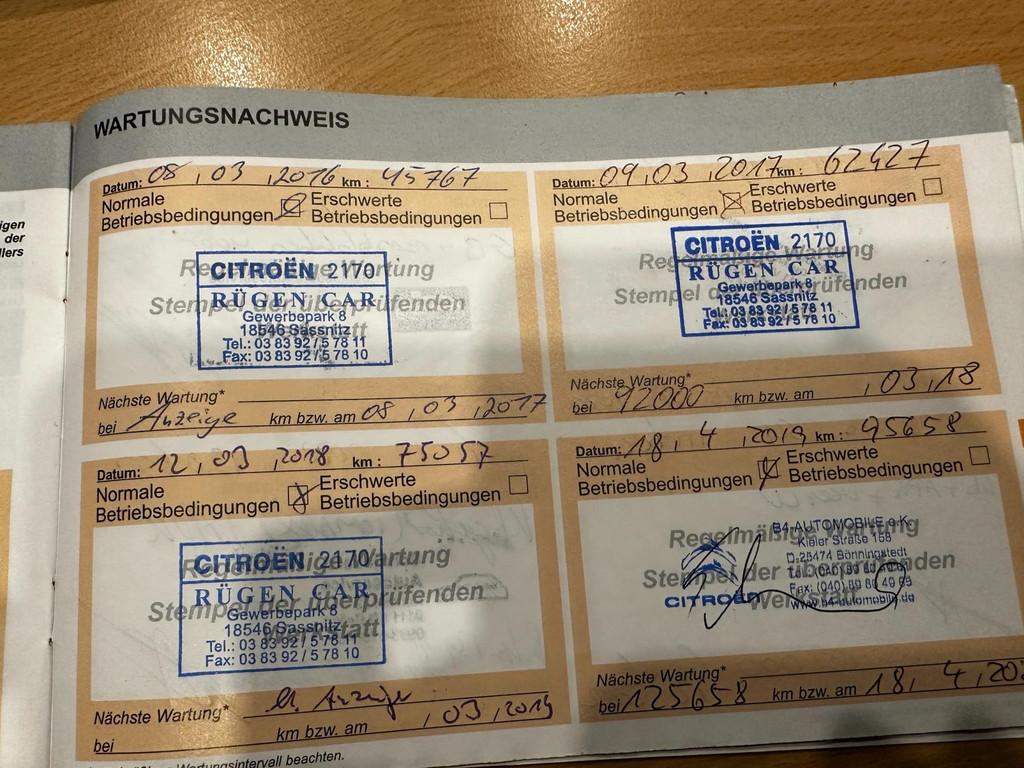 WARTUNGSNACHWEIS
igen
der
llers
Datum: 08 , 03 , 2016 km : 45767
Normale Betriebsbedingungen
Erschwerte Betriebsbedingungen
Regelmäßige Wartung
Stempel der überprüfenden
CITROËN 2170
RÜGEN CAR
Gewerbepark 8
18546 Sassnitz
Tel.: 03 83 92 / 5 78 11
Fax: 03 83 92 / 5 78 10
Nächste Wartung*
bei Anzeige km bzw. am 08 , 03 , 2017
Datum: 09 , 03 , 2017 km : 62427
Normale Betriebsbedingungen
Erschwerte Betriebsbedingungen
Regelmäßige Wartung
Stempel der überprüfenden
CITROËN 2170
RÜGEN CAR
Gewerbepark 8
18546 Sassnitz
Tel.: 03 83 92 / 5 78 11
Fax: 03 83 92 / 5 78 10
Nächste Wartung*
bei 92000 km bzw. am , 03 , 18
Datum: 12 , 03 , 2018 km : 75057
Normale Betriebsbedingungen
Erschwerte Betriebsbedingungen
Regelmäßige Wartung
Stempel der überprüfenden
Werkstatt
CITROËN 2170
RÜGEN CAR
Gewerbepark 8
18546 Sassnitz
Tel.: 03 83 92 / 5 78 11
Fax: 03 83 92 / 5 78 10
Nächste Wartung* lt. Anzeige
bei km bzw. am , 03 , 2019
Datum: 18 , 4 , 2019 km : 95658
Normale Betriebsbedingungen
Erschwerte Betriebsbedingungen
Regelmäßige Wartung
Stempel der überprüfenden
Werkstatt
CITROËN
B4-AUTOMOBILE e.K.
Kieler Straße 158
D-25474 Bönningstedt
Fax: (040) 89 80 49 99
www.b4-automobile.de
Nächste Wartung*
bei 125658 km bzw. am 18 , 4 , 202
Wartungsintervall beachten.